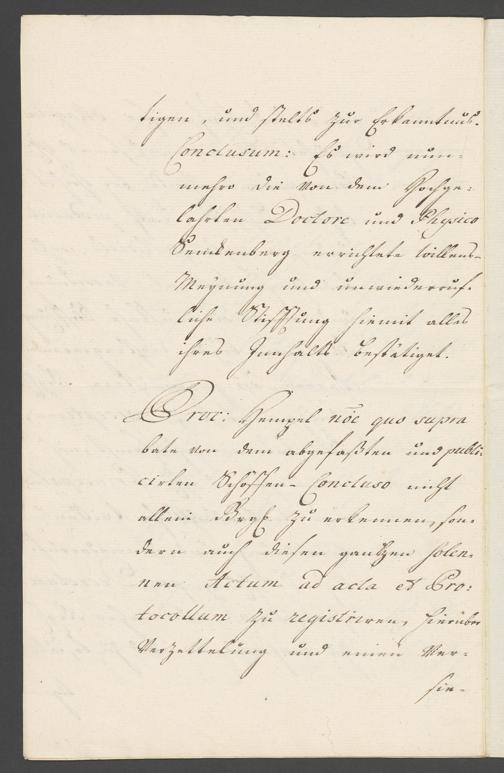 tigen, und stelts zur Erkanntnus.
Conclusum: Es wird nun-
mehro die von dem Hochge-
lahrten Doctore und Physico
Senckenberg errichtete Willens-
Meynung und unwiederruf-
liche Stifftung hiemit alles
ihres Innhalts bestätiget.
Proc: Hempel nõe quo supra
bate von dem abgefaßten und publi
cirten Schöffen-Concluso nicht
allein zu erkennen, son-
dern auch diesen gantzen solen-
nen Actum ad acta et Pro-
tocollum zu registriren, hierüber
Verzettelung und einen Ver-
sie-